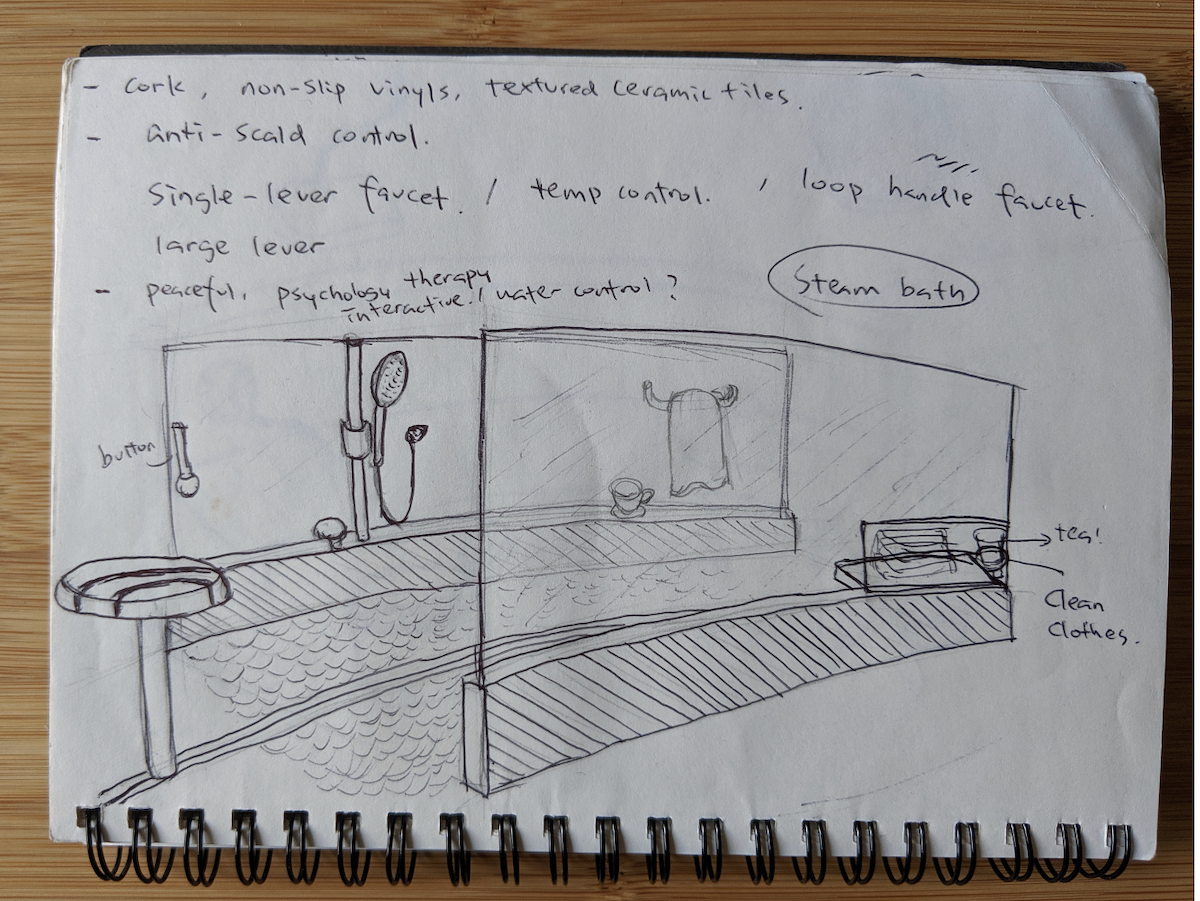 - cork, non-slip vinyls, textured ceramic tiles.
- anti-scald control.
single-lever faucet. / temp control. , loop handle faucet.
large lever
- peaceful, psychology therapy
interactive / water control ?
Steam bath
button
tea!
Clean
Clothes.